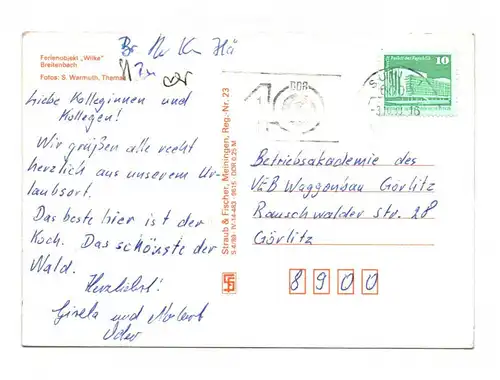 Ferienobjekt „Wilke"
Breitenbach
Fotos: S. Warmuth, Themar
Liebe Kolleginnen und
Kollegen!
Wir grüßen alle recht
herzlich aus unserem Ur-
laubsort.
Das beste hier ist der
Koch. Das schönste der
Wald.
Herzlichst!
Gisela und Norbert
Straub & Fischer, Meiningen, Reg.-Nr. 23
40
DDR
10
Betriebsakademie des
VEB Waggonbau Görlitz
Rauschwalder Str. 28
Görlitz
8900